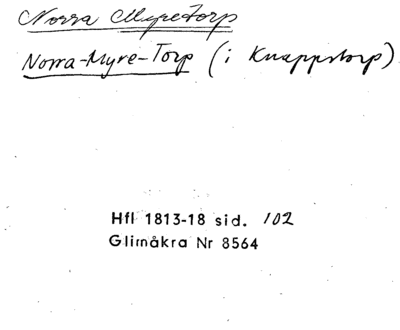 Norra Myretorp
Norra-Myre-Torp (i Knappstorp)
Hfl 1813-18 sid. 102
Glimåkra Nr 8564